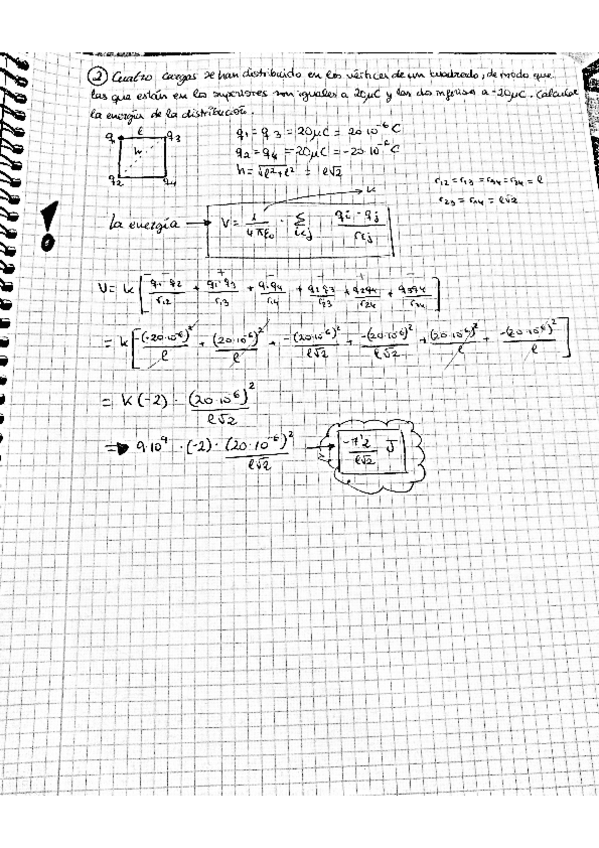 ② Cuatro cargas se han distribuido en los vértices de un cuadrado, de modo que
las que están en los superiores son iguales a 20μC y las dos inferiores a -20μC. Calcular
la energía de la distribución.
q1 l q3
h
q2 q4
q1 = q3 = 20μC = 20·10⁻⁶ C
q2 = q4 = -20μC = -20·10⁻⁶ C
h = √l²+l² = l√2
r12 = r13 = r24 = r34 = l
r23 = r14 = l√2
k
la energía → V = 1/4πε₀ · Σ i<j qi·qj/rij
V = k [ q1·q2/r12 + q1·q3/r13 + q1·q4/r14 + q2q3/r23 + q2q4/r24 + q3q4/r34 ]
= k [ -(20·10⁻⁶)²/l + (20·10⁻⁶)²/l + -(20·10⁻⁶)²/l√2 + -(20·10⁻⁶)²/l√2 + (20·10⁻⁶)²/l + -(20·10⁻⁶)²/l ]
= k(-2) · (20·10⁻⁶)²/l√2
⇒ 9·10⁹ · (-2) · (20·10⁻⁶)²/l√2 → -7'2/l√2 J